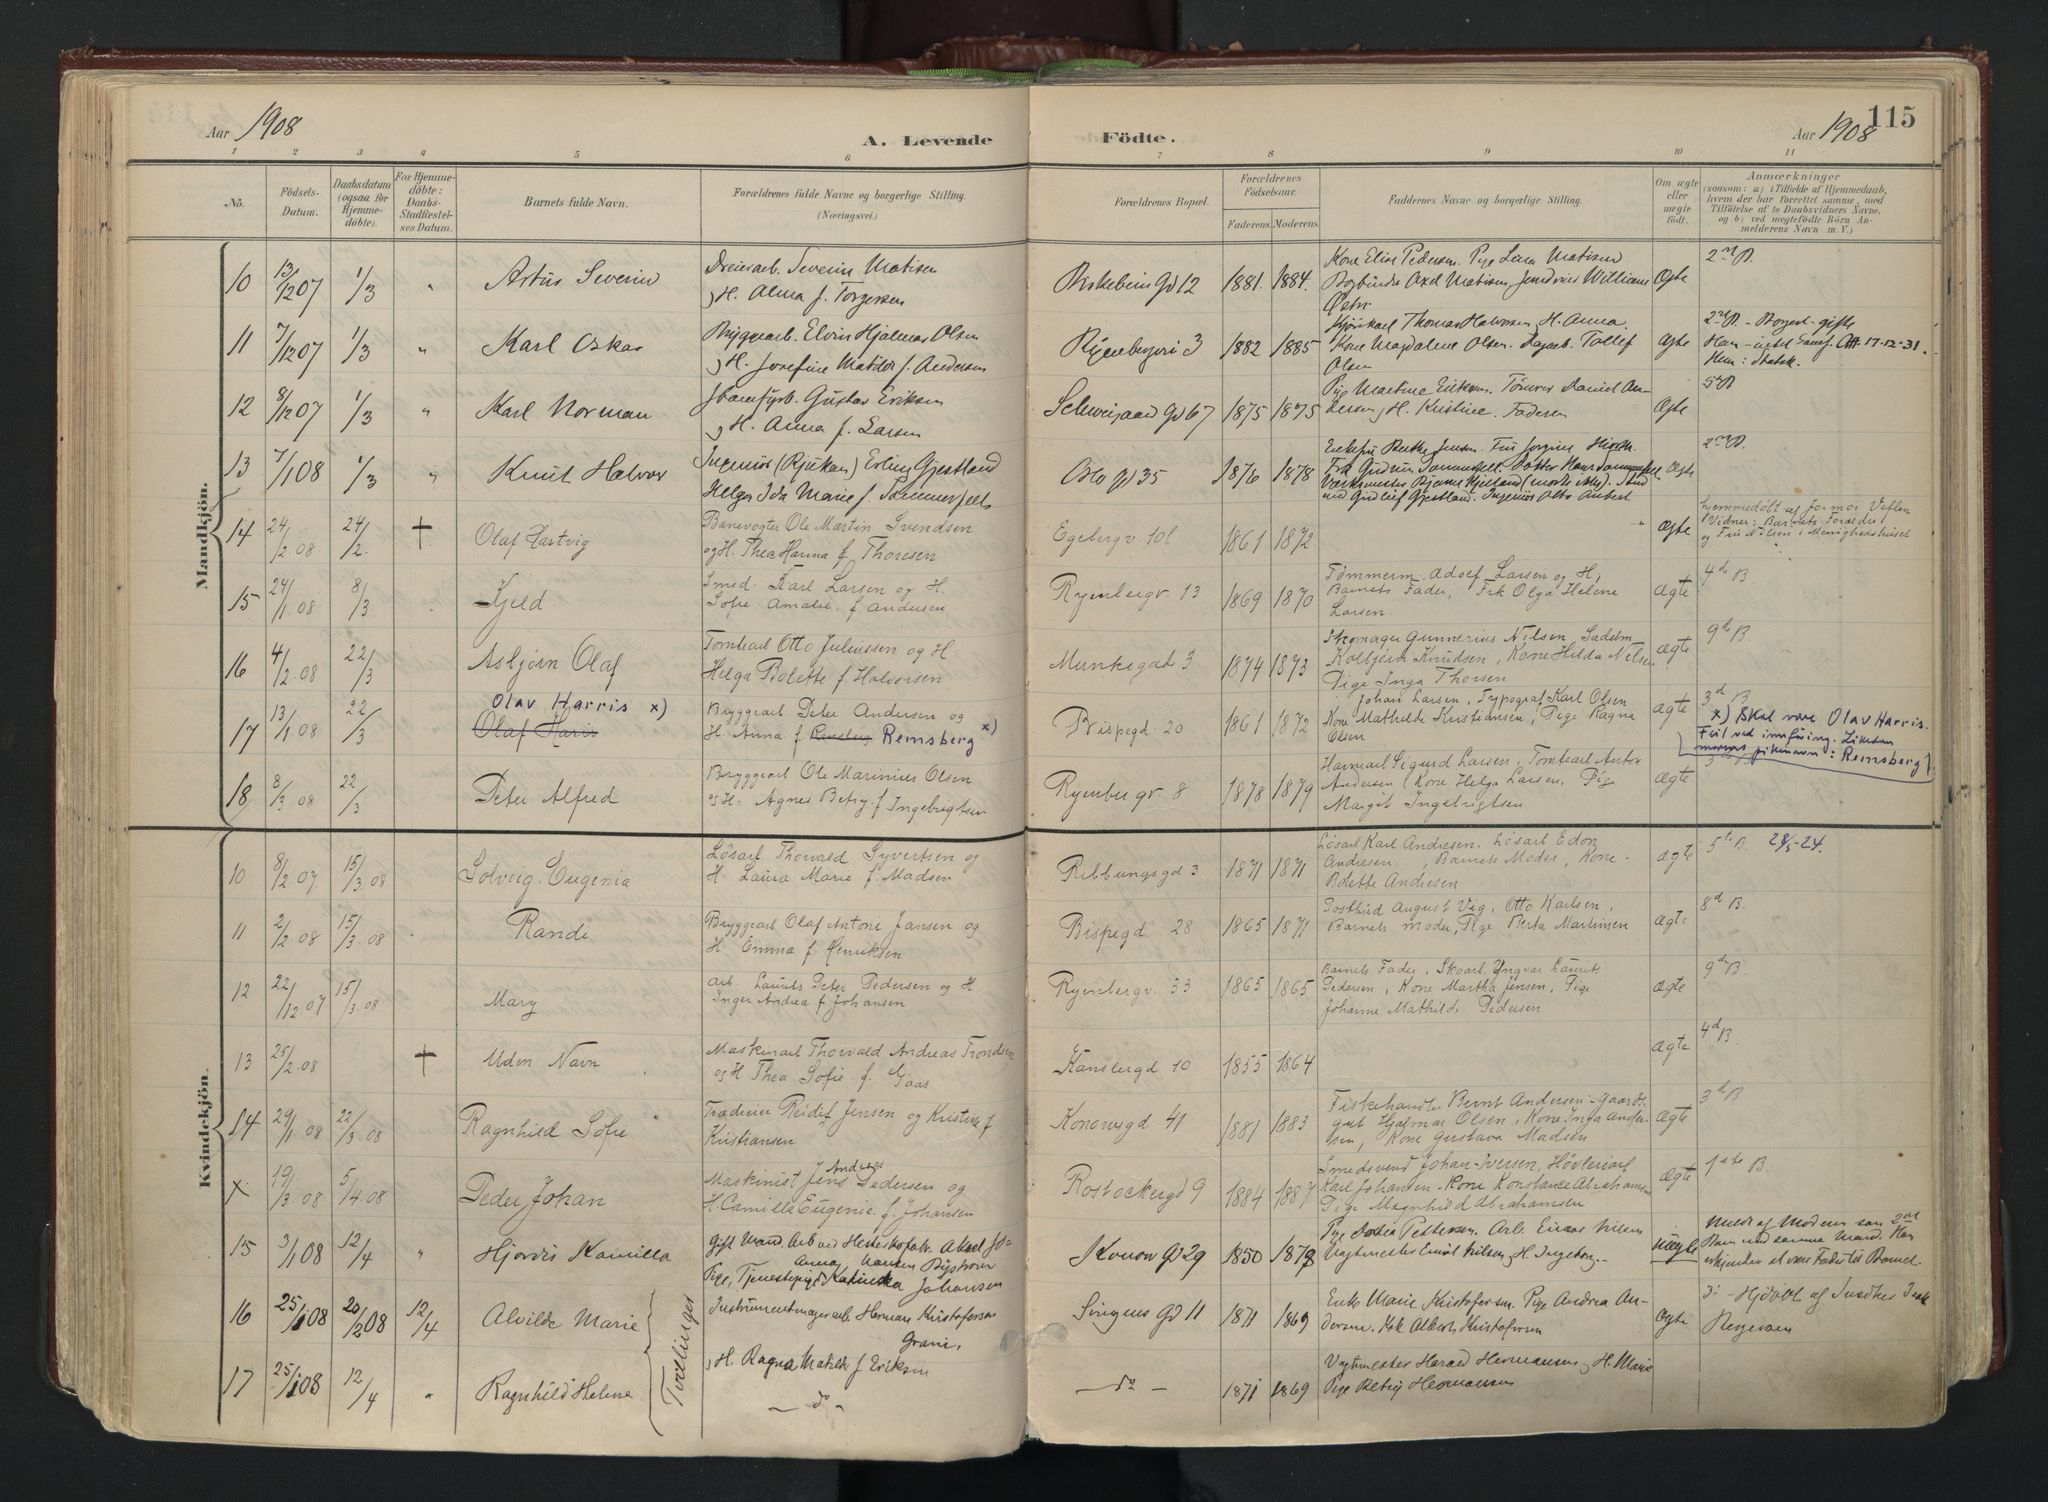 115
Aar 1908
A. Levende
Födte.
Aar 1908
1 2 3 4 5 6 7 8 9 10 11
No.
Födsels-
Datum.
Daabsdatum
(ogsaa for
Hjemme-
döbte).
For Hjemme-
döbte:
Daabs-
Stadfæstel-
ses Datum.
Barnets fulde Navn.
Forældrenes fulde Navne og borgerlige Stilling.
(Næringsvei.)
Forældrenes Bopæl.
Forældrenes
Födselsaar.
Faderens. Moderens.
Faddernes Navne og borgerlige Stilling.
Om ægte
eller
uægte
födt.
Anmærkninger
(saasom: a) i Tilfælde af Hjemmedaab,
hvem der har forrettet samme, med
Tilföielse af to Daabsvidners Navne,
og b) ved uægtefödte Börn An-
melderens Navn m. V.)
Mandkjön.
10 13/12 07 1/3 " Artur Severin
Dreierarb. Severin Matisen
og H. Alma f. Torgersen
Birkebein gd 12 1881. 1884.
Kone Elise Pedersen. Pige Lina Matisen
Bogbinder Axel Matisen,
Ægte 2den B.
11 7/12 07 1/3 " Karl Oskar
Bryggearb. Hjalmar Olsen
og H. Josefine Matilde f. Andersen
Ryenbergvei 3 1882 1885
Thomas Halvorsen, H. Anna.
Kone Magdalene Olsen. Tollef
Olsen
Ægte 2den B. - Borgerl. gifte
17-12-31.
12 8/12 07 1/3 " Karl Norman
Gustav Eriksen
og H. Anna f. Larsen
Schweigaard gd 67 1875 1875
Pige Martine Eriksen. Tömrer Daniel An-
dersen og H. Kristine. Faderen
Ægte 5te B
13 7/1 08 1/3 " Knut Halvor
Ingeniör (Rjukan) Erling Gjestland
Helga Ida Marie f. Sommerfelt
Oslo gd 35 1876 1878
Frk Gudrun Sommerfelt.
Gudleif Gjestland. Ingeniör Otto Aubert
Ægte 2den B.
14 24/2 08 24/2. † Olaf Hartvig
Banevogter Ole Martin Svendsen
og H. Thea Hanna f. Thoresen
Egebergv. 10 1861 1872
ægte
Hjemmedöbt af Jormor Vetlen
Vidner: Barnets Forældre
og Fru Nilsen i Menighedshuset
15 24/1 08 8/3 Kjeld.
Smed. Karl Larsen og H.
Sofie Amalie, f. Andersen
Ryenbergv. 13 1869 1870
Tömmerm. Adolf Larsen og H,
Barnets Fader, Frk Olga Helene
Larsen.
ægte 4de B
16 4/2 08 22/3 Asbjörn Olaf
Tomtearb Otto Juliussen og H
Helga Bolette f Halvorsen
Munkegad 3 1874 1873
Skomager Gunnerius Nilsen, Sadelm
Kolbjörn Knudsen, Kone Hilda Nilsen
Pige Inga Thorsen
ægte 9de B.
Olav Harris x)
17 13/1 08 22/3 Olaf Haris
Bryggearb Peter Andersen og
H. Anna f Remsberg x)
Bispegd 20 1861 1872
Johan Larsen, Typograf Karl Olsen
Kone Mathilde Kristiansen, Pige Ragna
Olsen
ægte 3d B
x) Skal være Olav Harris.
Feil ved innföring. Likedan
morens pikenavn: Remsberg
18 8/3 08 22/3 Peter Alfred
Bryggearb Ole Marinius Olsen
og H. Agnes Betsy f Ingebrigtsen
Ryenbergv. 8 1878 1879
Havnearb Sigurd Larsen, Tomtearb Anton
Andersen, Kone Helga Larsen, Pige
Margit Ingebrigtsen
ægte
Kvindekjön.
10 8/2 07 15/3 08 Solveig Eugenia
Lösarb. Thorvald Syvertsen og
H. Laura Marie f. Madsen
Ribbungsgd 3 1871 1871
Lösarb Karl Andresen. Lösarb Edon
Andresen, Barnets Moder, Kone
Bolette Andresen
ægte 5te B. 28/5-24.
11 2/2 08 15/3 08 Randi
Bryggearb Olaf Antoni Jansen og
H. Emma f Henriksen
Bispegd 28 1865 1871
Postbud August Vig, Otto Karlsen,
Barnets Moder, Pige Berta Martinsen
ægte 8d B.
12 22/12 07 15/3 08 Mary
Arb. Laurits Peter Pedersen og H
Inger Andrea f Johansen
Ryenbergv. 33 1865 1865
Barnets Fader, Skoarb Yngvar Laurits
Pedersen, Kone Martha Jensen, Pige
Johanne Mathilde Pedersen
ægte 9d B.
13 25/2 08 † Uden Navn
Maskinarb Thorvald Andreas Trondsen
og H Thea Sofie f. Gaas
Kanslergd 10 1855 1864
ægte 4d B.
14 29/1 08 22/3 08 Ragnhild Sofie
Trædreier Reidif Jensen og Kristine f
Kristiansen
Konowsgd 41 1881 1883
Fiskehandler Bernt Andersen, Gaards-
gut Hjalmar Olsen, Kone Inga Ander-
sen, Kone Gustava Madsen
ægte 3d B
x 19/3 08 5/4 08 Peder Johan
Maskinist Jens Andreas Pedersen og
H. Camilla Eugenie f. Johansen
Rostockergd 9 1884 1887
Smedsvend Johan Iversen, Hövleriarb
Karl Johansen. Kone Konstance Abrahamsen
Pige Magnhild Abrahamsen
ægte 1ste B.
15 3/1 08 12/4 " Hjördis Kamilla
Gift Mand. Arb ved Hesteskofabr. Aksel Jo-
Anna Hansen Bystrøm
Pige, Tjenestepige Katinka Johansen
Konow gd 29 1850 1878
Pige Pettersen. Arb. Einar Nilsen
Vagtmester Emil Nilsen, H. Ingeborg.
Uægte
Meldt af Moderen som 2det
Barn med samme Mand. Han
erkjender at være Fader til Barnet.
16 25/1 08 20/2 08 12/4 Alvilde Marie
Tvillinger
Instrumentmagerarb. Herman Kristofersen
Grani.
og H. Ragna Matilde f Eriksen
Sörgens gd 11 1871 1869
Enke Marie Kristofersen. Pige Andrea An-
dersen. Albert Kristofersen
Ægte
17 25/1 08 12/4 " Ragnhild Helene
- do -
- do - 1871 1869
Vagtmester Harald Hermansen og H. Marie
Pige Betsy Hermansen